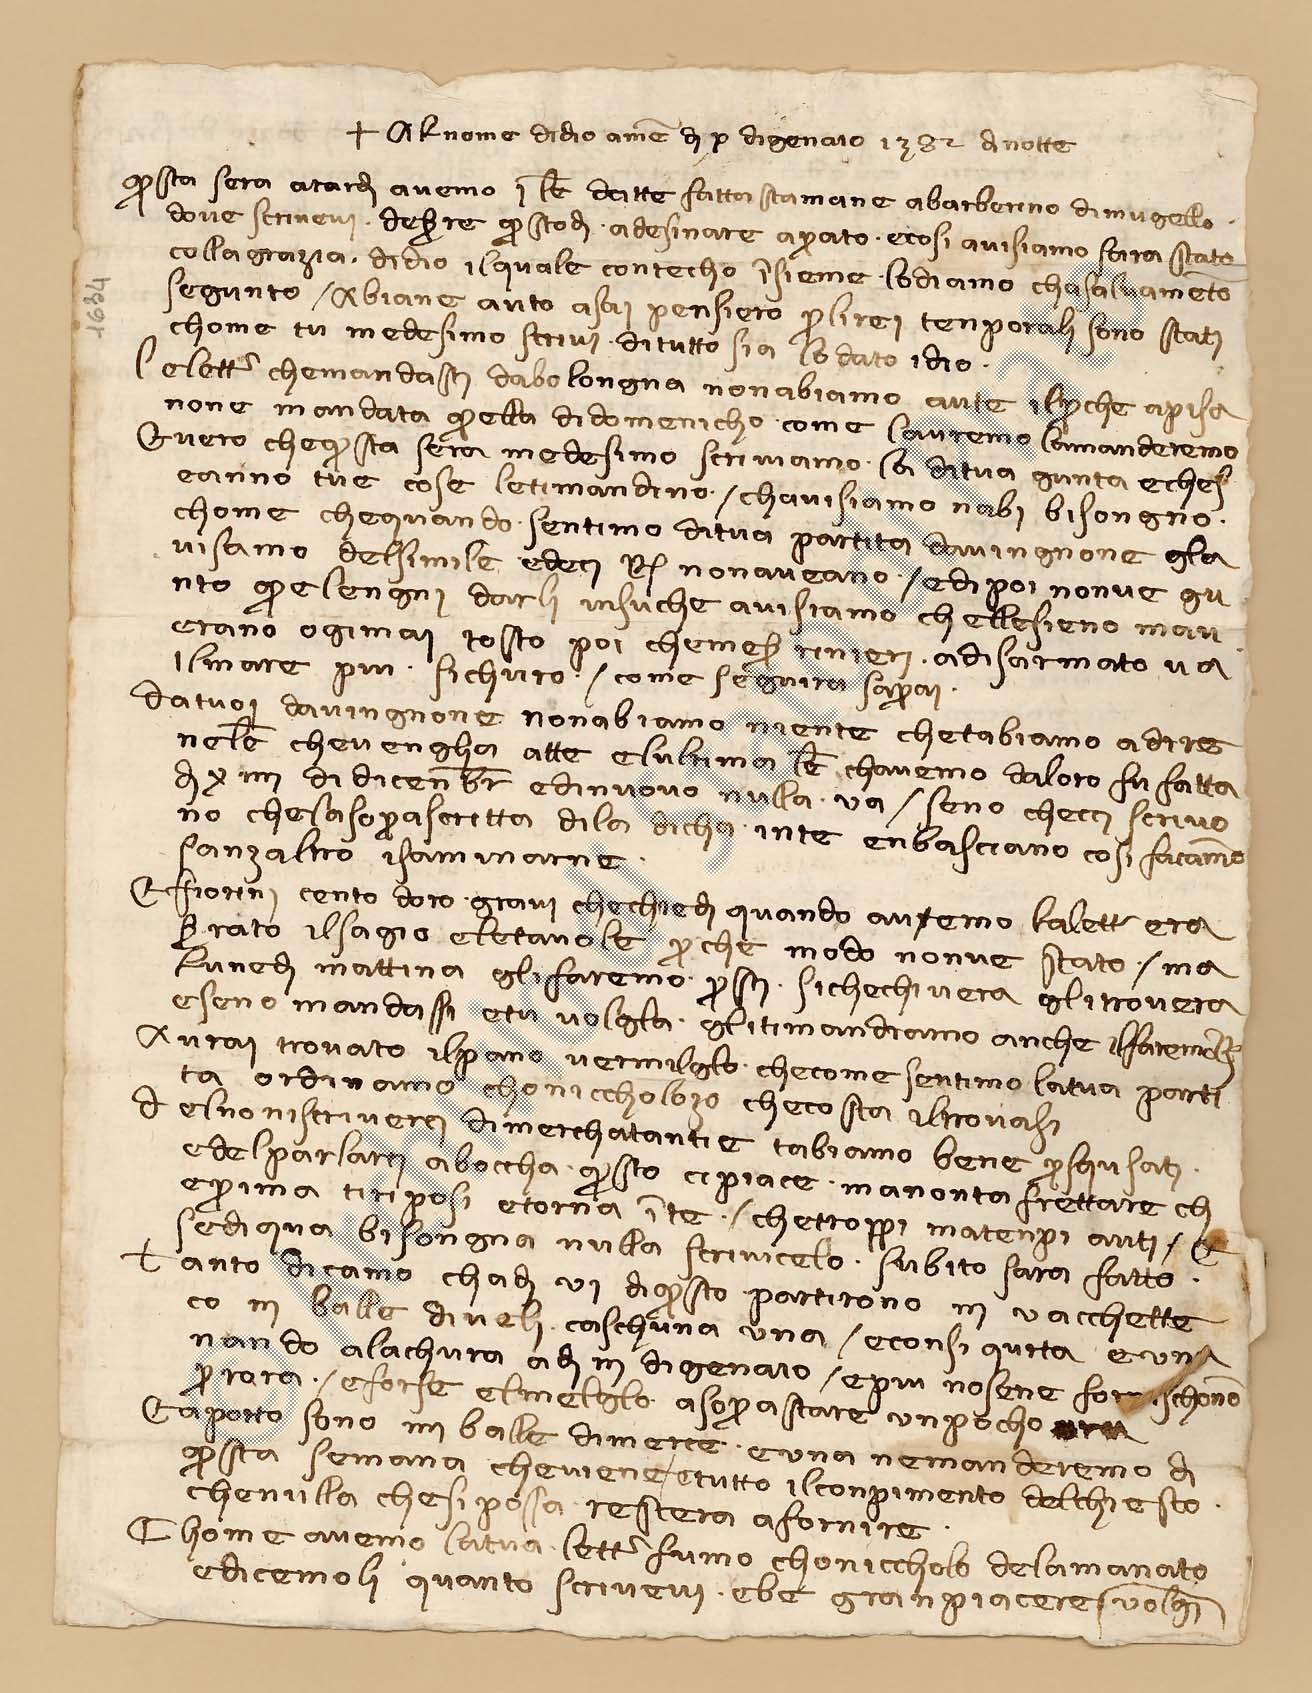 + Al nome didio amē dj p digenaio 1382 dinotte
qsta sera atardj avemo j lē datte fatta stamane abarberino dimugello ·
dove scrivevi · deƀre qstodj · adesinare aprato · ecosi avisiamo sara stato
collagrazia · didio ilquale contecho īsieme · lodiamo chasalvamēto
segunto / Abiane auto asai pensiero plirei tenporali sono stati
chome tu medesimo scrivi · ditutto sia lodato idio ·
Lelettē chemandasti dabolongna nonabiamo aute ilpche apisa
none mandata qella didomenicho · come lauremo lamanderemo
Evero cheqsta sera medesimo scriviamo · la ditua gunta eches
eanno tue cose letimandino · / chavisiamo nabi bisongno ·
chome chequando · sentimo ditua partita davingnone gla
visamo delsimile edeci nonaveano · / edipoi nonve gu
nto qelengni darli insuche avisiamo chellesieno mau
erano ogimai tosto poi chemes rinieri · adisarmato va
ilmare piu · sichuro · / come seguira saprai ·
Datuoi davingnone nonabiamo niente chetabiamo adires
nelē chevengha atte elultima lē chavemo daloro fu fatta
dj xiiii di dicenbr edinuovo nulla · va / seno checci scrivo
no chelasoprascritta dila dicha · inte enbasciano cosi facamo
sanzaltro isaminarne ·
E fiorini cento doro · gravi chechiedi quando auremo lalettera
ƀrato ilsagio eletavole pche modo nonve stato · / ma
lunedj mattina glifaremo · psti · sichechivera glitrovera
eseno mandassi etu volglia · glitimandiamo anche ilfaremo
Avrai trovato ilpano vermilglo · checome sentimo latua parti
ta ordinamo choniccholozo checosta iltrovasi
Delnoniscriverci dimerchatantie tabiamo bene pisqusati ·
edelparlarci aboccha · qsto cipiace · manonta frettare ch
eprima tiriposi etorna īte · / chetroppi matenpi auti / E
sediqua bisongna nulla scrivicelo · subito sara fatto ·
Tanto dicamo chadj vi diqsto partirono iii vacchette
co iii balle diveli · caschuna una / econsi qurta euna
nando alachura adj iii digenaio / epiu nosene fornischono
prora · / eforse elmelglo · asoprastare unpocho
Eapotto sono iiii balle dimerce · euna nemanderemo di
qsta semana cheviene / etutto ilconpimento delchiesto ·
chenulla chesipossa · restera afornire ·
Chome avemo latua · lettē fumo chonicchollo delamanato
edicemoli quanto scrivevi · ebe granpiacere /
1694